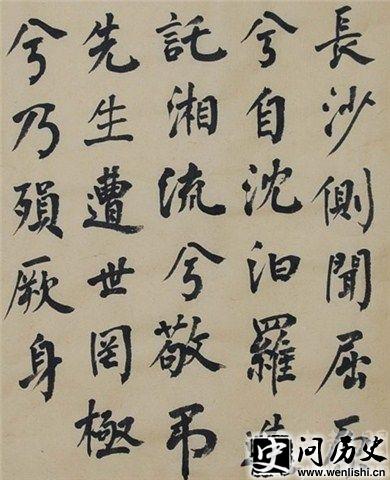 長沙側聞屈
兮自沈汨羅
託湘流兮敬弔
先生遭世罔極
兮乃殞厥身
问历史
www.wenlishi.cn